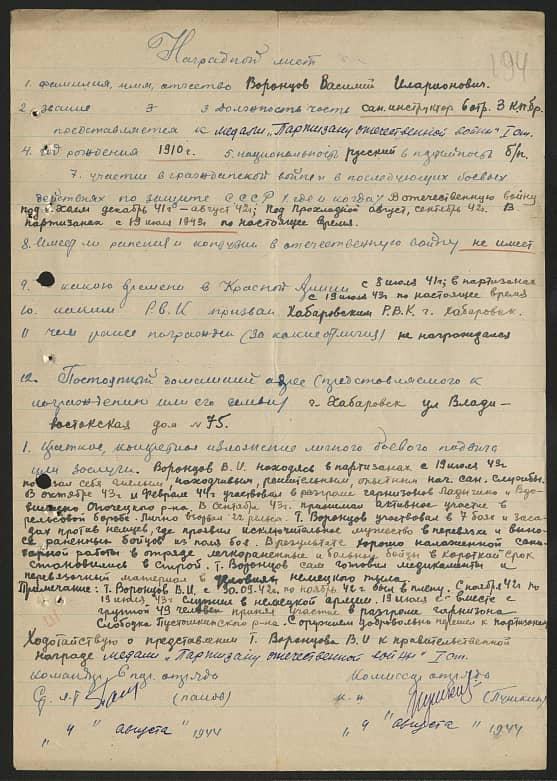 194
Наградной лист
1. Фамилия, имя, отчество Воронцов Василий Иларионович.
2. звание 3 3 должность часть сан.инструктор 6 отр. 3 К.п.бр.
представляется к медали „Партизану отечественной войны" I ст.
4. год рождения 1910 г. 5. национальность русский 6 партийность б/п.
7. участие в гражданской войне и в последующих боевых
действиях по защите СССР (где и когда) В отечественную войну
под декабрь 41г – август 42г; Под Прохладной август, сентябрь 42г. В
партизанах с 19 июля 1943г по настоящее время.
8. Имеет ли ранения и контузии в отечественную войну не имет
9. с какого времени в Красной Армии с 8 июля 41г; в партизанах
с 19 июля 43г по настоящее время
10. каким Р.В.К призван Хабаровским Р.В.К г. Хабаровск.
11 чем ранее награжден (за какие отличия) не награждался
12. Постоянный домашний адрес (представляемого к
награждению или его семьи) г. Хабаровск ул Влади-
востокская дом № 75.
1. Краткое, конкретное изложение личного боевого подвига
или заслуги. Воронцов В.И. находясь в партизанах с 19 июля 43г
показал себя смелым, находчивым, решительным, нач. сан. службы.
В октябре 43г и феврале 44г участвовал в разгроме гарнизонов и
Опочецкого р-на. В сентябре 43г. принимал активное участие в
рельсовой борьбе. Лично взорвал 12 рельс. Т. Воронцов участвовал в 7 боях и заса-
дах против немцев, где проявил исключительное мужество в перевязке и выно-
се раненных бойцов из поля боя. В результате хорошо налаженной сани-
тарной работы в отряде легкораненные и больные бойцы в короткий срок
становились в строй. Т. Воронцов сам готовил медикаменты и
перевязочный материал в условиях немецкого тыла.
Примечание: Т. Воронцов В.И. с 30.09.42г. по ноябрь 42г был в плену. С ноября 42г по
19 июля 43г служил в немецкой армии. 19 июля с вместе с
группой 49 человек принял участие в разгроме гарнизона
Слободка Пустошкинского р-на. С оружием добровольно перешел к партизанам
Ходатайствую о представлении Т. Воронцова В.И к правительственной
награде медали „Партизану отечественной войны" I ст.
Командир 6 парт. отряда Комиссар отряда
(Панов) к-н (Пушкин)
„ " августа 1944 „ 4 " августа 1944